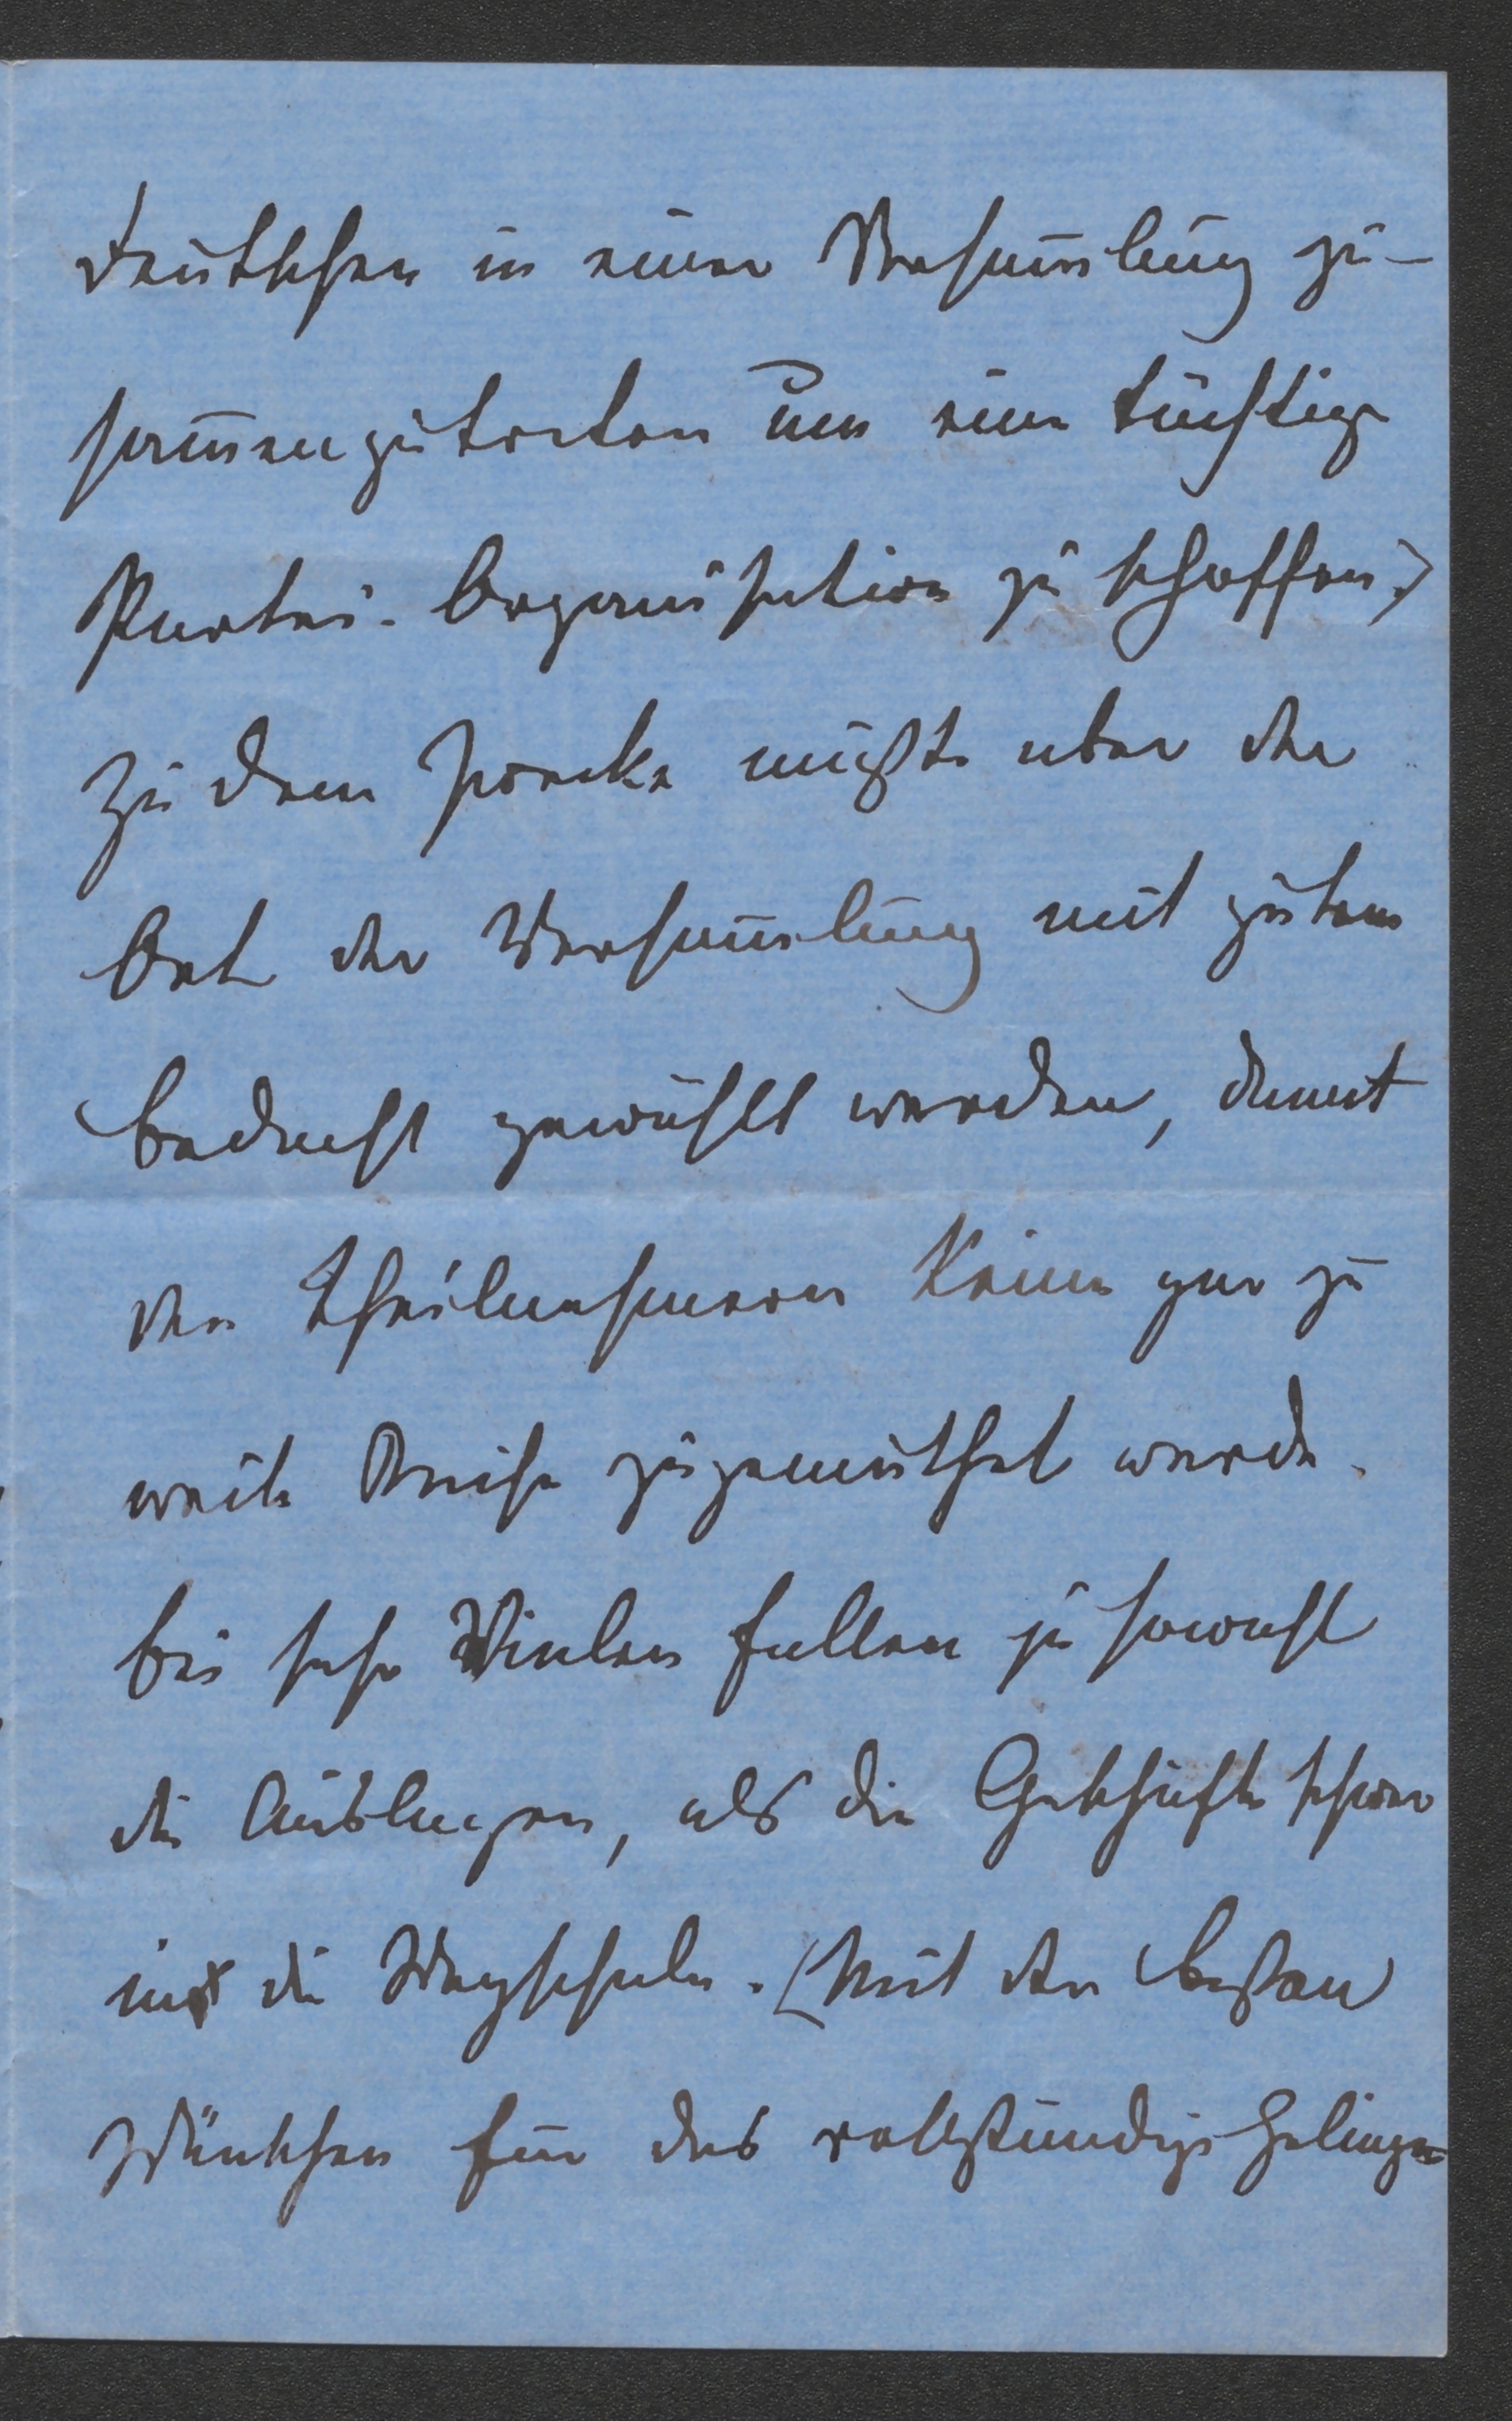 Deutschen in einer Versam̄lung zu-
sam̄enzutreten um eine tüchtige
Partei-Organisation zu schaffen)
Zu dem Zwecke müßte aber der
Ort der Versam̄lung mit gutem
Bedacht gewählt werden, damit
den Theilnehmern keine gar zu
weite Reise zugemuthet werde.
Bei sehr Vielen fallen ja sowohl
die Auslagen, als die Geschäfte schwer
in die Wagschale. (Mit den besten
Wünschen für das vollständige Gelingen